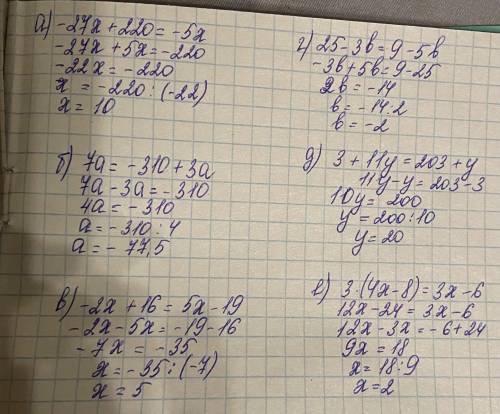 а) -27x + 220 = -5x
-27x + 5x = -220
-22x = -220
x = -220 : (-22)
x = 10
б) 7a = -310 + 3a
7a - 3a = -310
4a = -310
a = -310 : 4
a = -77,5
в) -2x + 16 = 5x - 19
-2x - 5x = -19 - 16
-7x = -35
x = -35 : (-7)
x = 5
г) 25 - 3b = 9 - 5b
-3b + 5b = 9 - 25
2b = -14
b = -14 : 2
b = -2
д) 3 + 11y = 203 + y
11y - y = 203 - 3
10y = 200
y = 200 : 10
y = 20
е) 3 · (4x - 8) = 3x - 6
12x - 24 = 3x - 6
12x - 3x = -6 + 24
9x = 18
x = 18 : 9
x = 2